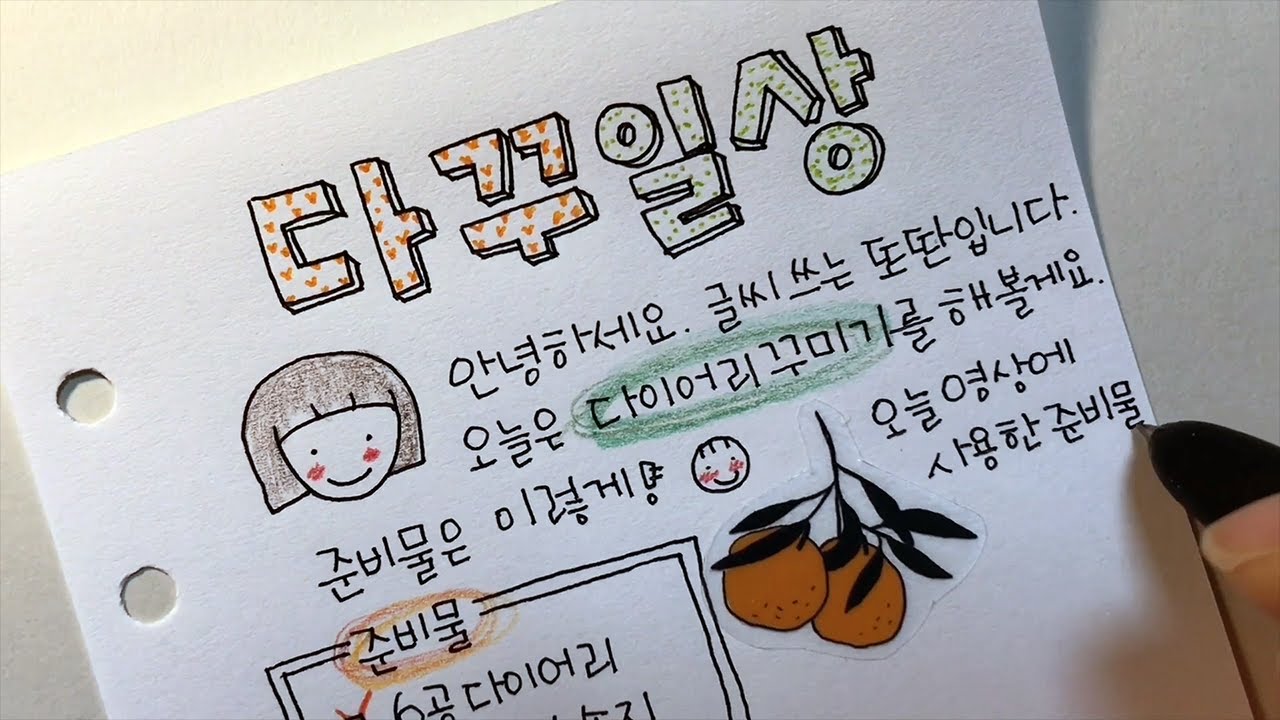 다꾸일상
안녕하세요. 글씨 쓰는 또딴입니다.
오늘은 다이어리 꾸미기를 해볼게요.
준비물은 이렇게
오늘 영상에
사용한 준비물
준비물
6공 다이어리